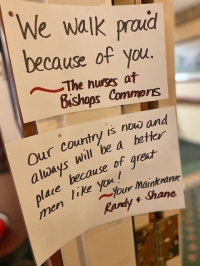 We walk proud
because of you.
~The nurses at
Bishops Commons
Our country is now and
always will be a better
place because of great
men like you!
~Your Mainkrane
Randy & Shane